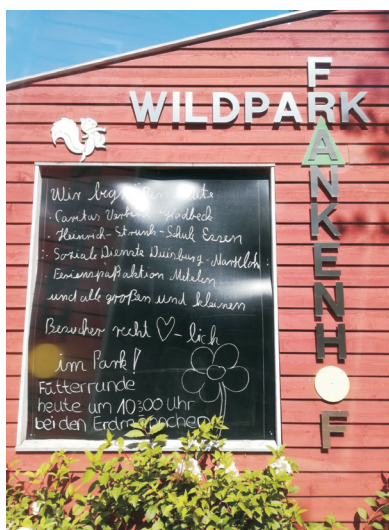 WILDPARK
FRANKENHOF
Wir begrüßen heute
· Caritas Verband Gladbeck
· Heinrich-Strunk-Schule Essen
· Soziale Dienste Duisburg-Marxloh
· Ferienspaßaktion Metelen
und alle großen und kleinen
Besucher recht ♡-lich
im Park!
Fütterrunde
heute um 10:00 Uhr
bei den Erdmännchen